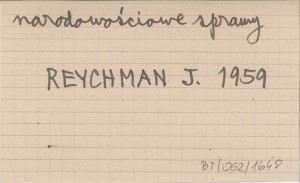 narodowościowe sprawy
REYCHMAN J. 1959
BT/062/1648